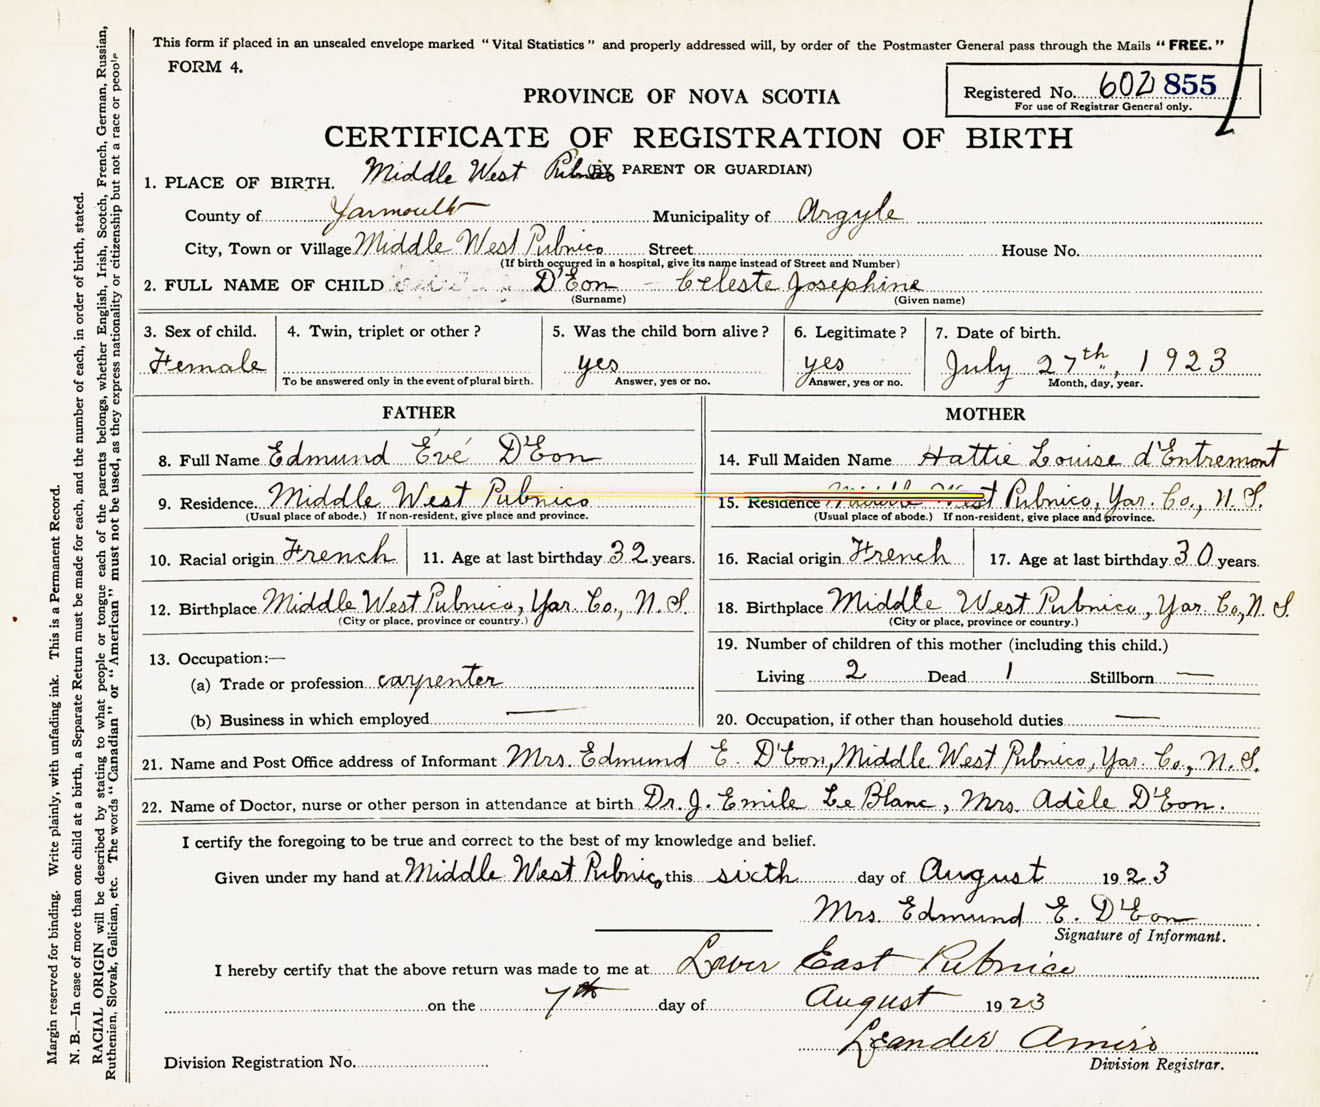 This form if placed in an unsealed envelope marked "Vital Statistics" and properly addressed will, by order of the Postmaster General pass through the Mails "FREE."
FORM 4.
Registered No. 602 855
For use of Registrar General only.
PROVINCE OF NOVA SCOTIA
CERTIFICATE OF REGISTRATION OF BIRTH
(BY PARENT OR GUARDIAN)
1. PLACE OF BIRTH. Middle West Pubnico
County of Yarmouth Municipality of Argyle
City, Town or Village Middle West Pubnico Street House No.
(If birth occurred in a hospital, give its name instead of Street and Number)
2. FULL NAME OF CHILD D'Eon - Celeste Josephine
(Surname) (Given name)
3. Sex of child. 4. Twin, triplet or other? 5. Was the child born alive? 6. Legitimate? 7. Date of birth.
Female yes yes July 27th, 1923
To be answered only in the event of plural birth. Answer, yes or no. Answer, yes or no. Month, day, year.
FATHER MOTHER
8. Full Name Edmund Évé D'Eon 14. Full Maiden Name Hattie Louise d'Entremont
9. Residence. Middle West Pubnico 15. Residence Middle West Pubnico, Yar. Co., N. S.
(Usual place of abode.) If non-resident, give place and province. (Usual place of abode.) If non-resident, give place and province.
10. Racial origin French 11. Age at last birthday 32 years. 16. Racial origin French 17. Age at last birthday 30 years.
12. Birthplace Middle West Pubnico, Yar. Co., N. S. 18. Birthplace Middle West Pubnico, Yar. Co, N. S.
(City or place, province or country.) (City or place, province or country.)
13. Occupation:— 19. Number of children of this mother (including this child.)
(a) Trade or profession carpenter Living 2 Dead 1 Stillborn —
(b) Business in which employed — 20. Occupation, if other than household duties —
21. Name and Post Office address of Informant Mrs. Edmund E. D'Eon, Middle West Pubnico, Yar. Co., N. S.
22. Name of Doctor, nurse or other person in attendance at birth Dr. J. Emile Le Blanc, Mrs. Adèle D'Eon.
I certify the foregoing to be true and correct to the best of my knowledge and belief.
Given under my hand at Middle West Pubnico, this sixth day of August 1923
Mrs. Edmund E. D'Eon
Signature of Informant.
I hereby certify that the above return was made to me at Lower East Pubnico
on the 7th day of August 1923
Leander Amiro
Division Registration No. Division Registrar.
Margin reserved for binding. Write plainly, with unfading ink. This is a Permanent Record.
N. B.—In case of more than one child at a birth, a Separate Return must be made for each, and the number of each, in order of birth, stated.
RACIAL ORIGIN will be described by stating to what people or tongue each of the parents belongs, whether English, Irish, Scotch, French, German, Russian,
Ruthenian, Slovak, Galician, etc. The words "Canadian" or "American" must not be used, as they express nationality or citizenship but not a race or people